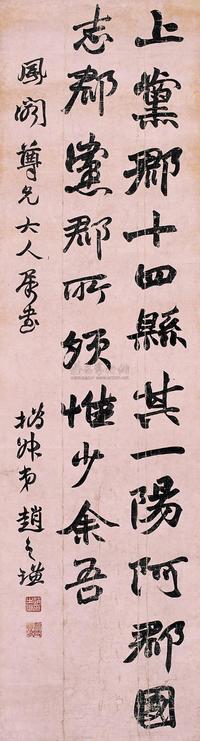 上黨郡十四縣其一陽阿郡國
志郡黨郡所領惟少余吾
鳳閣尊兄大人屬書
撝叔弟趙之謙